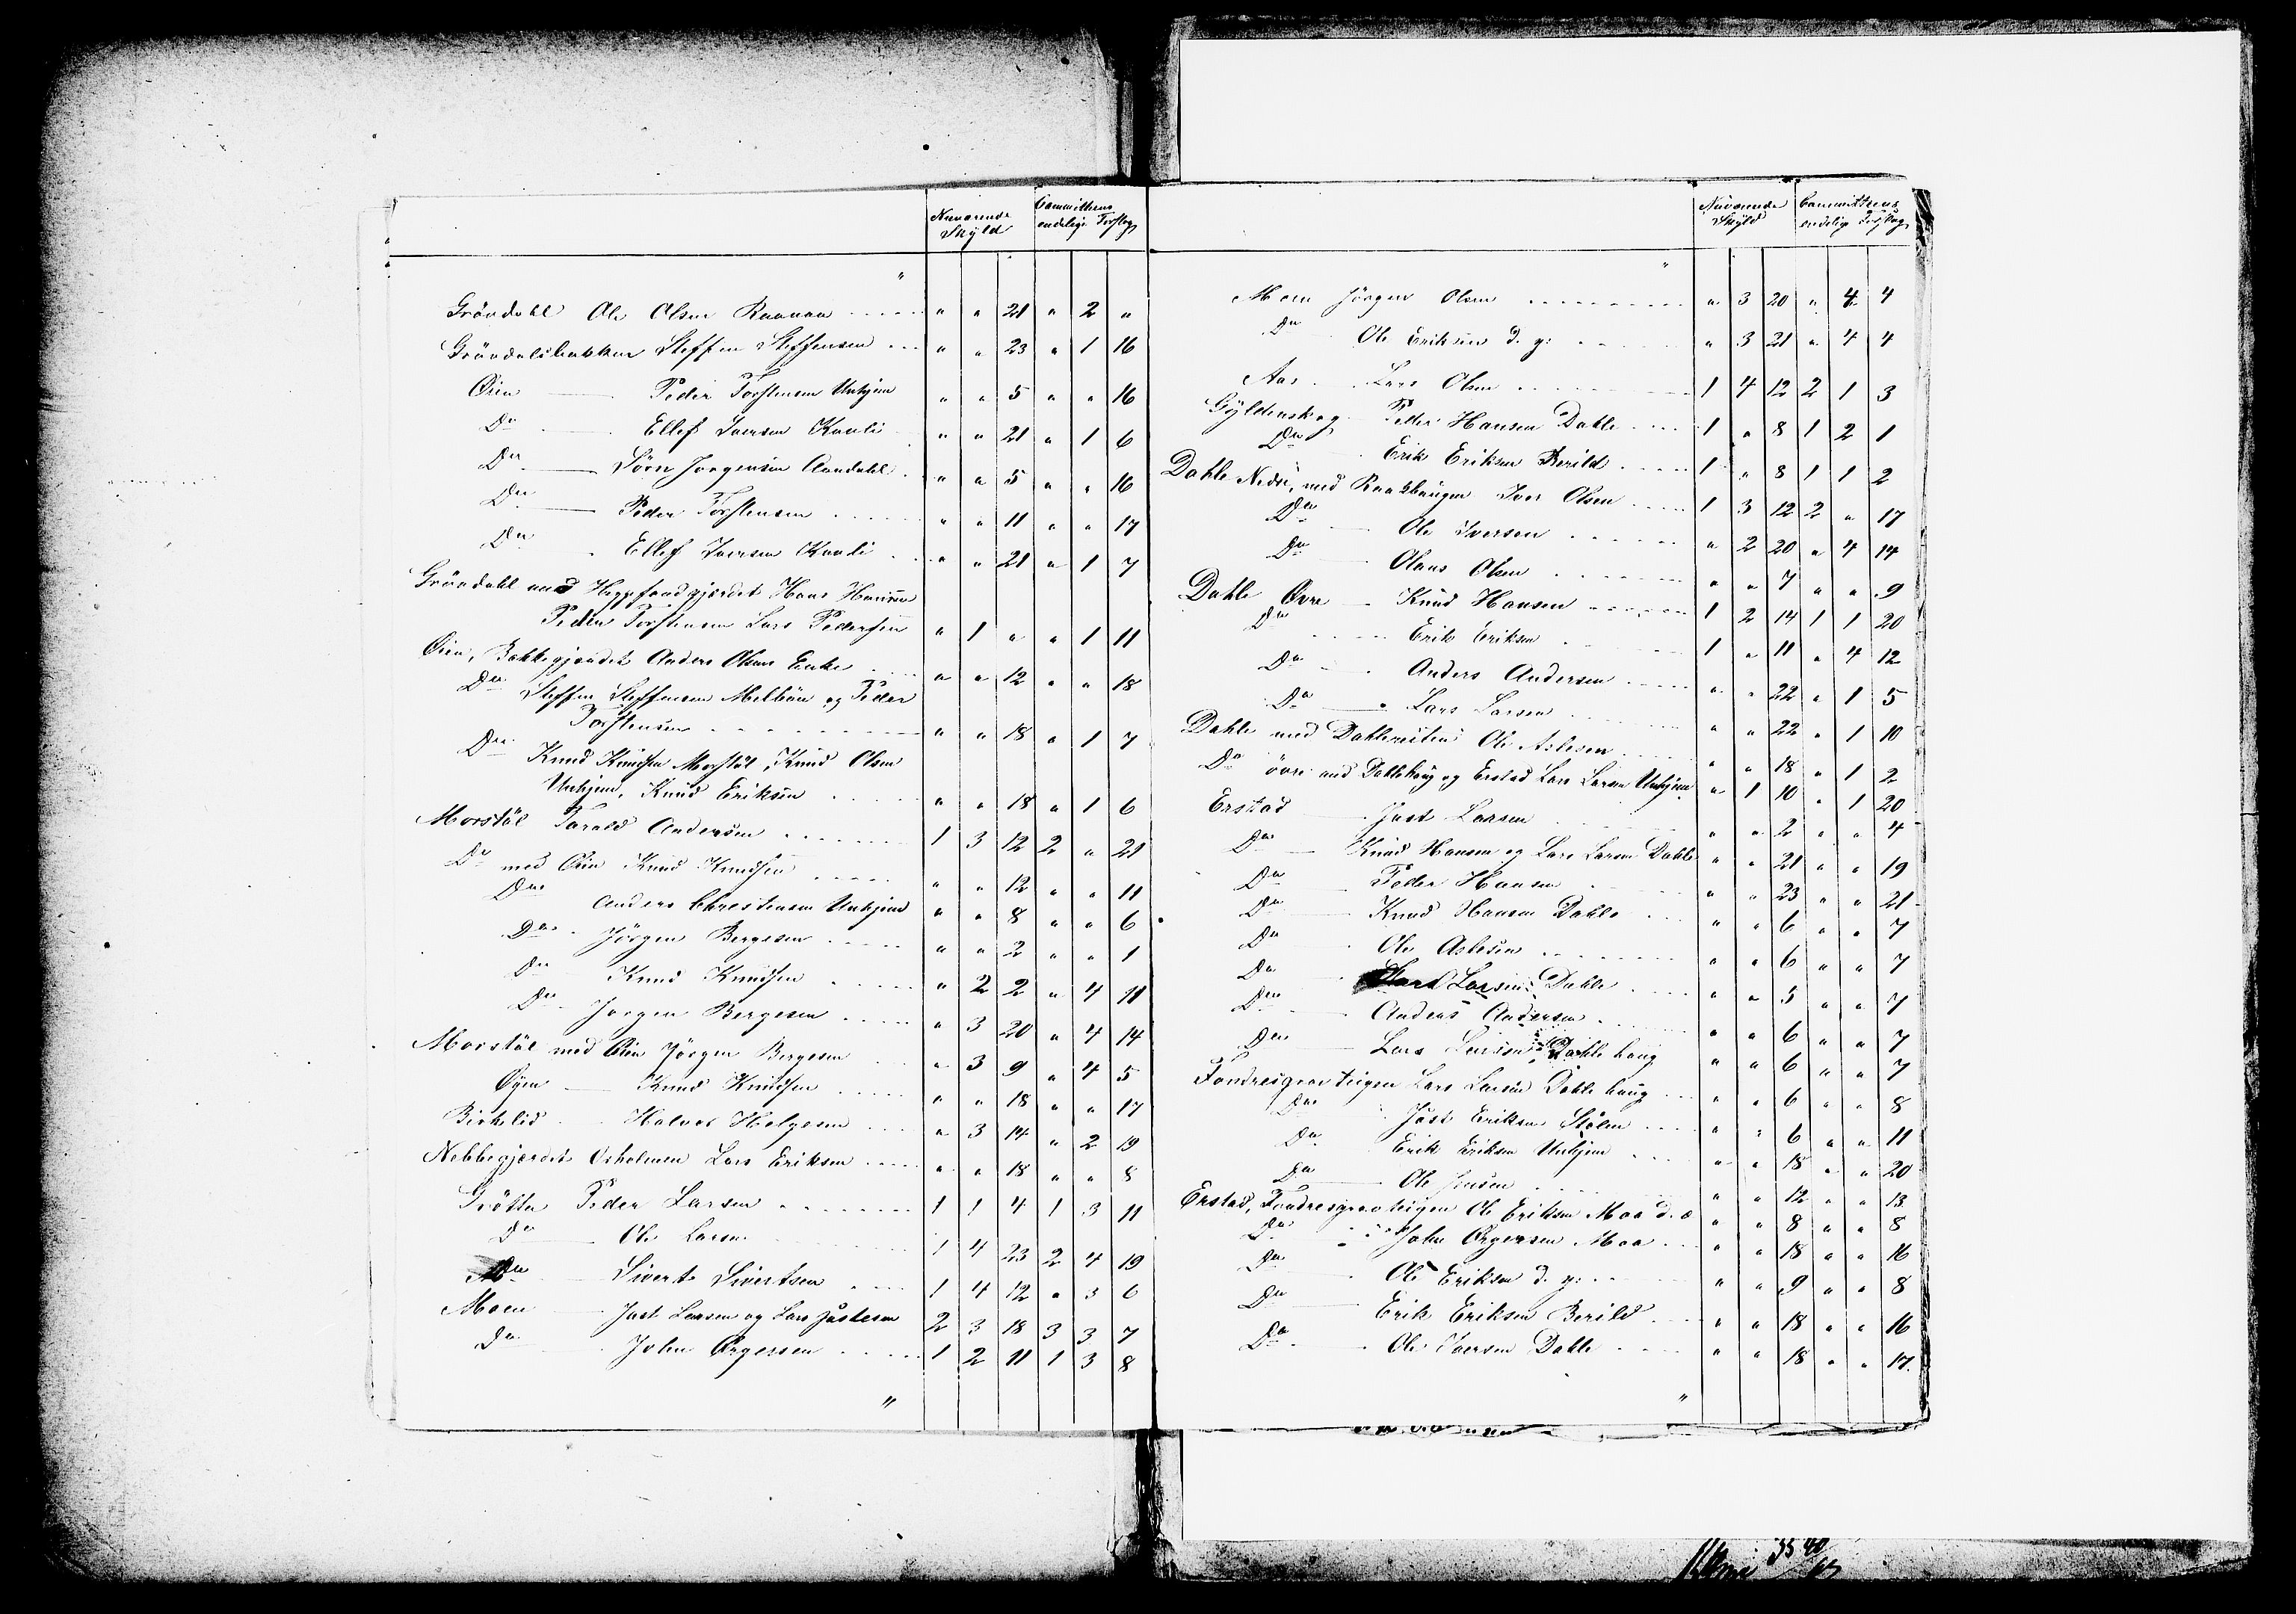 Nuværende Skyld
Committeens endelige Forslag
"
Gröndahl Ole Olsen Ravnaa " " 21 " 2 "
Gröndalsbakken Steffen Steffensen " " 23 " 1 16
Öien Peder Torstensen Unhjem " " 5 " " 16
Do Ellef Iversen Kavli " " 21 " 1 6
Do Sören Jorgensen Aandahl " " 5 " " 16
Do Peder Torstensen " " 11 " " 17
Do Ellef Iversen Kavli " " 21 " 1 7
Gröndahl med Hans Hansen
Peder Torstensen Lars Pedersen " 1 " " 1 11
Öien, Bakkegjærdet Anders Olsen " " 12 " " 18
Do Steffen Steffensen og Peder
Torstensen " " 18 " 1 7
Do Knud Knudsen Morstöl, Knud Olsen
Unhjem, Knud Eriksen " " 18 " 1 6
Morstöl Tarald Andersen 1 3 12 2 " 21
Do med Öien Knud Knudsen " " 12 " " 11
Do Anders Christensen Unhjem " " 8 " " 6
Do Jörgen Bergesen " " 2 " " 1
Do Knud Knudsen " 2 2 " 4 11
Do Jorgen Bergesen " 3 20 " 4 14
Morstöl med Öien Jörgen Bergesen " 3 9 " 4 5
Öyen Knud Knudsen " " 18 " " 17
Birkelid Halvor Helgesen " 3 14 " 2 19
Nebbegjærdet Lars Eriksen " " 18 " " 8
Grötta Peder Larsen 1 1 4 1 3 11
Do Ole Larsen 1 4 23 2 4 19
Do Sivert Sivertsen 1 4 12 " 3 6
Moen Jost Larsen og Lars Jostesen 2 3 18 3 3 7
Do John Örgersen 1 2 11 1 3 8
"
Nuværende Skyld
Committeens endelige Forslag
"
Moen Jörgen Olsen " 3 20 " 4 4
Do Ole Eriksen d. y: " 3 21 " 4 4
Aas Lars Olsen 1 4 12 2 1 3
Gyldenskog Peder Hansen Dahle 1 " 8 1 2 1
Do Erik Eriksen Berild 1 " 8 1 1 2
Dahle Nedre, med Iver Olsen 1 3 12 2 " 17
Do Ole Iversen " 2 20 " 4 14
Do Olaus Olsen " " 7 " " 9
Dahle Övre Knud Hansen 1 2 14 1 1 20
Do Erik Eriksen 1 " 11 " 4 12
Do Anders Andersen " " 22 " 1 5
Do Lars Larsen " " 22 " 1 10
Dahle med Ole Aslesen " " 18 " 1 2
Do övre med Dahlehoug og Erstad Lars Larsen Unhjem " 1 10 " 1 20
Erstad Jost Larsen " " 2 " " 4
Do Knud Hansen og Lars Larsen Dahle " " 21 " " 19
Do Peder Hansen " " 23 " " 21
Do Knud Hansen Dahle " " 6 " " 7
Do Ole Aslesen " " 6 " " 7
Do Larsen Dahle " " 5 " " 7
Do Anders Andersen " " 6 " " 7
Do Lars Larsen Dahle haug " " 6 " " 7
Lars Larsen Dahle haug " " 6 " " 8
Do Jost Eriksen Stölen " " 6 " " 11
Do Erik Eriksen Unhjem " " 18 " " 20
Do Ole Jensen " " 12 " " 13
Erstad, Ole Eriksen Moa d. æ " " 8 " " 8
Do John Örgersen Moa " " 18 " " 16
Do Ole Eriksen d. y: " " 9 " " 8
Do Erik Eriksen Berild " " 18 " " 16
Do Ole Iversen Dahle " " 18 " " 17.
"